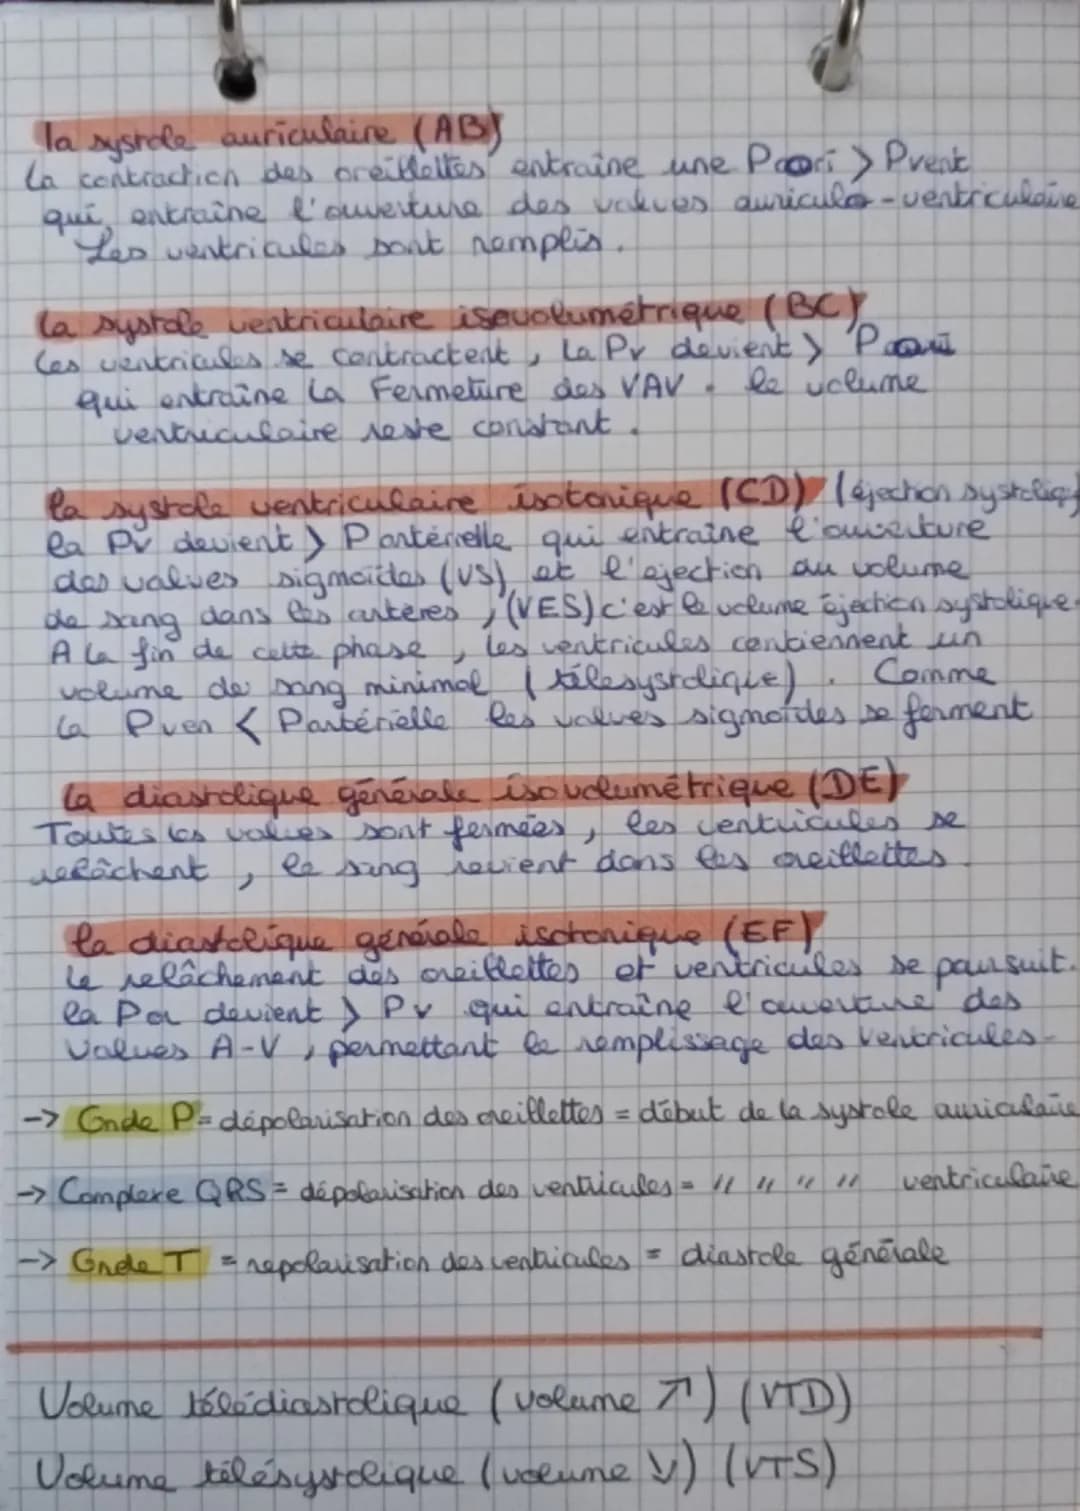 la systole auriculaire (AB)
La contraction des oreillettes entraine une Pori > Pvent
qui entraîne l'ouverture des valves auriculo-ventriculaire
Les ventricules sont remplis.
La systole ventriculaire isovolumétrique (BC)
Les ventricules se contractent, la Pv devient >
qui entraîne la Fermeture des VAV. le volume
ventriculaire reste constant.
la systole ventriculaire isotonique (CD) (éjection systoliq
la Pv devient > Partérielle qui entraîne l'ouverture
des valves sigmoïdes (VS) et l'ejection du volume
de sang dans les artères, (VES) c'est le volume éjection systolique.
A la fin de cette phase, les ventricules contiennent un
volume de sang minimal (télésystolique). Comme
la Pven < Partérielle les valves sigmoïdes se ferment
La diastolique générale isovolumétrique (DE)
Toutes les valves sont fermées, les ventricules se
relâchent, le sang revient dans les oreillettes.
la diastolique générale isotonique (EF)
Le relâchement des oreillettes et ventricules se poursuit.
la Por devient > Pv qui entraîne l'ouverture des
valves A-V, permettant le remplissage des ventricules-
-> Onde P = dépolarisation des oreillettes = début de la systole auriculaire
-> Complexe QRS = dépolarisation des ventricules = " " " " ventriculaire
-> Onde T = repolarisation des ventricules = diastole générale
Volume télédiastolique (volume ↗) (VTD)
Volume télésystolique (volume ↓) (VTS)